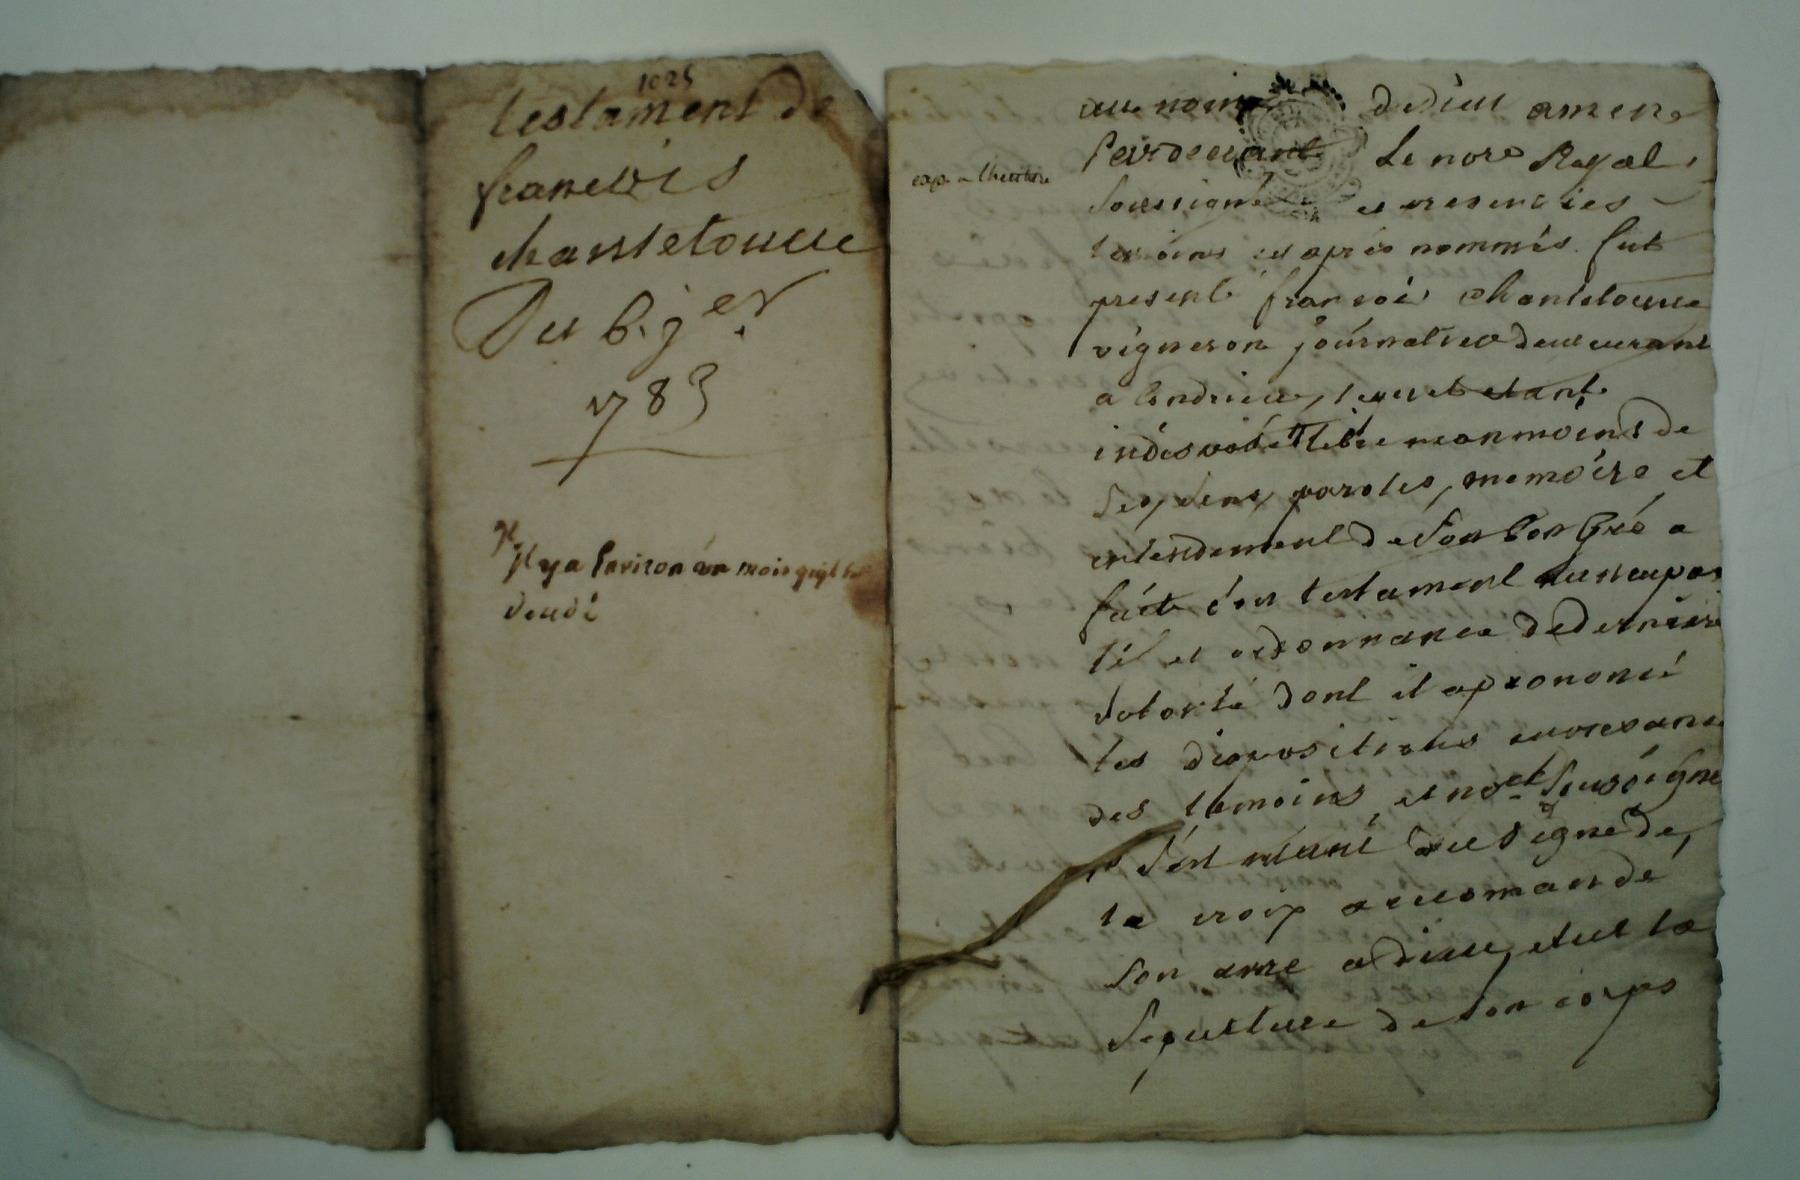 1025
testament de
francois
chantelouve
Du 6. jer
1783
Il y a Environ un mois quil est
decedé
au nom de dieu amen
Pardevant Le nore Royal
soussigné et presents les
temoins cy apres nommés fut
present francois chantelouve
vigneron journalier demeurant
a lequel etant
indisposé libre neanmoins de
ses sens, paroles, memoire et
entendement de son bon gré a
fait son testament nuncupa
tif et ordonnance de derniere
volonté dont il a prononcé
les dispositions en presance
des temoins et nore soussigné
s'est muni du signe de
la croix a recomandé
son ame a dieu, elut la
sepulture de son corps